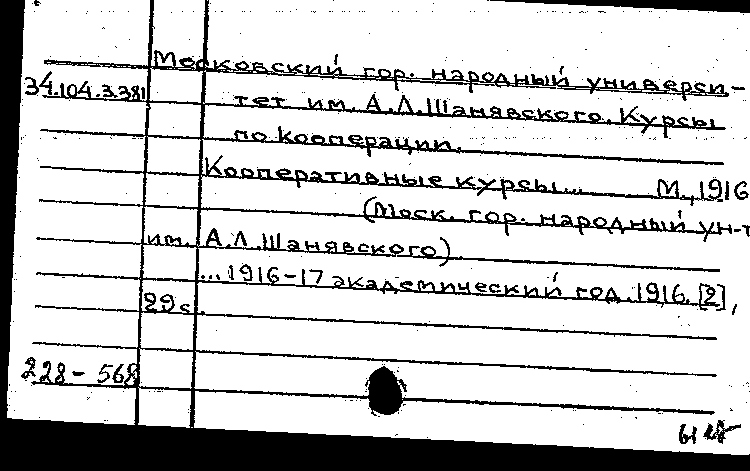 Московский гор. народный универси-
34.104.3.381
тет им. А.Л.Шанявского. Курсы
по кооперации.
Кооперативные курсы... М., 1916
(Моск. гор. народный ун-т
им. А.Л.Шанявского)
...1916-17 академический год. 1916. [2],
29 с.
228-568